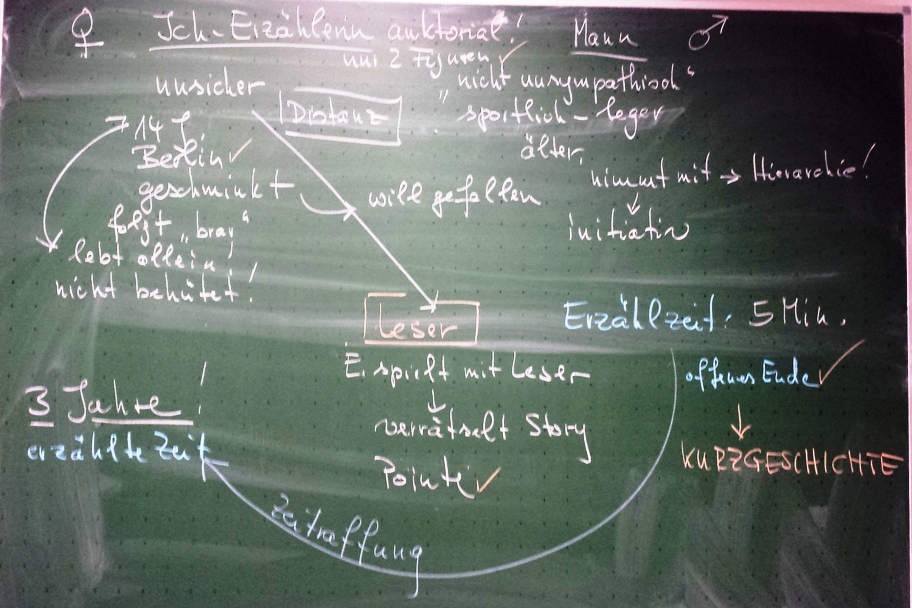 ♀ Ich-Erzählerin auktorial!
nur 2 Figuren ✓
Mann ♂
unsicher
Distanz
"nicht unsympathisch"
sportlich-leger
älter,
14 J
Berlin ✓
geschminkt
will gefallen
folgt "brav"
lebt allein!
nicht behütet!
nimmt mit → Hierarchie!
initiativ
Leser
E. spielt mit Leser
verrätselt Story
Pointe ✓
Erzählzeit: 5 Min.
offenes Ende ✓
KURZGESCHICHTE
3 Jahre!
erzählte Zeit
Zeitraffung